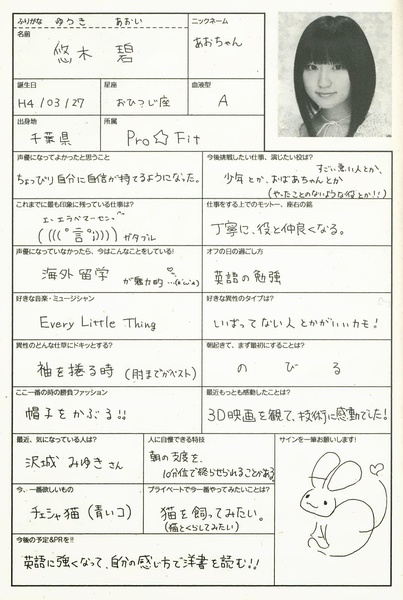 ふりがな ゆうき あおい
名前
悠木 碧
ニックネーム
あおちゃん
誕生日
H4/03/27
星座
おひつじ座
血液型
A
出身地
千葉県
所属
Pro☆Fit
声優になってよかったと思うこと
ちょっぴり自分に自信が持てるようになった。
今後挑戦したい仕事、演じたい役は?
すごい悪い人とか、
少年とか、おばあちゃんとか
(やったことのないような役とか!!)
これまでに最も印象に残っている仕事は?
エ、エラベマーセン、
((((゜言゜;)))) ガタブル
仕事をする上でのモットー、座右の銘
丁寧に、役と仲良くなる。
声優になっていなかったら、今はこんなことをしている!
海外留学 が魅力的…(*'ω'*)
オフの日の過ごし方
英語の勉強
好きな音楽・ミュージシャン
Every Little Thing
好きな異性のタイプは?
いばってない人とかがいいカモ!
異性のどんな仕草にドキッとする?
袖を捲る時 (肘までがベスト)
朝起きて、まず最初にすることは?
のびる
ここ一番の時の勝負ファッション
帽子をかぶる!!
最近もっとも感動したことは?
3D映画を観て、技術に感動でした!
最近、気になっている人は?
沢城 みゆきさん
人に自慢できる特技
朝の支度を、
10分位で終らせられることがある
サインを一筆お願いします!
今、一番欲しいもの
チェシャ猫(青いコ)
プライベートで今一番やってみたいことは?
猫を飼ってみたい。
(猫とくらしてみたい)
今後の予定&PRを!!
英語に強くなって、自分の感じ方で洋書を読む!!